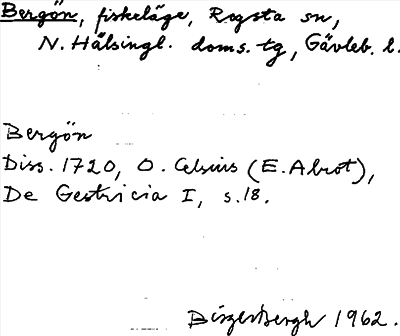 Bergön, fiskeläge, Rogsta sn,
N. Hälsingl. doms. tg, Gävleb. l.
Bergön
Diss. 1720, O. Celsius (E. Abrot),
De Gestricia I, s. 18.
1962.